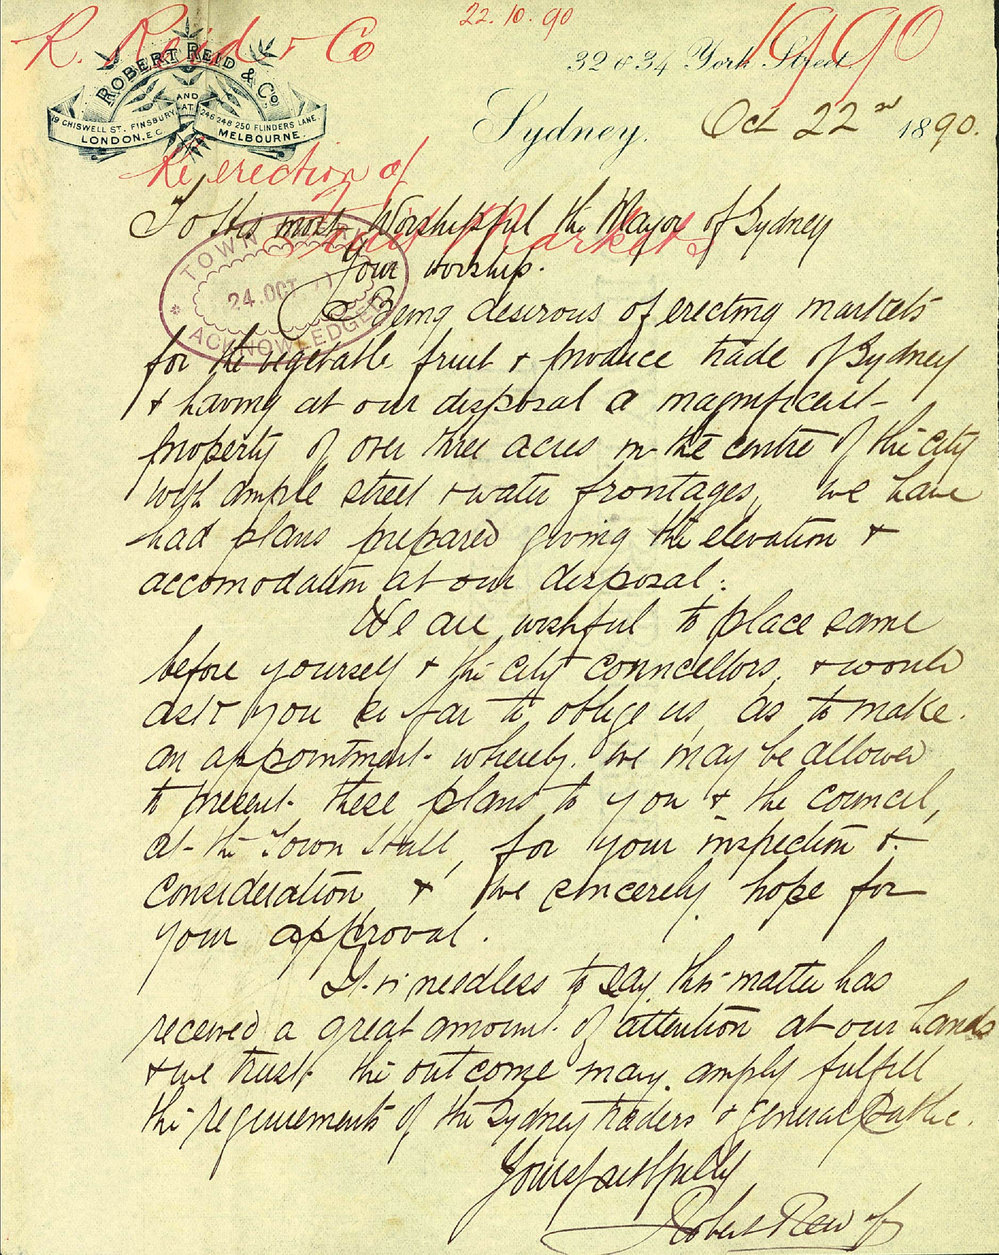 R. Reid & Co
22.10.90
1990
ROBERT REID & Co
AND
AT
19 CHISWELL ST. FINSBURY
LONDON. E.C.
246 248 250 FLINDERS LANE.
MELBOURNE.
32 & 34 York Street
Sydney. Oct 22nd 1890.
Re erection of
Markets
To His most Worshipful the Mayor of Sydney
TOWN
24. OCT
ACKNOWLEDGED
Your worship.
Being desirous of erecting markets
for the vegetable fruit & produce trade of Sydney
& having at our disposal a magnificent
property of over three acres in the centre of the city
with ample street & water frontages, we have
had plans prepared giving the elevation &
accomodation at our disposal.
We are wishful to place same
before yourself & the city councellors, & would
ask you so far to oblige us as to make
an appointment whereby we may be allowed
to present these plans to you & the council,
at the Town Hall, for your inspection &
consideration & we sincerely hope for
your approval.
It is needless to say this matter has
received a great amount of attention at our hands
& we trust the outcome may amply fulfill
the requirements of the Sydney traders & general public.
Yours faithfully
Robert Reid